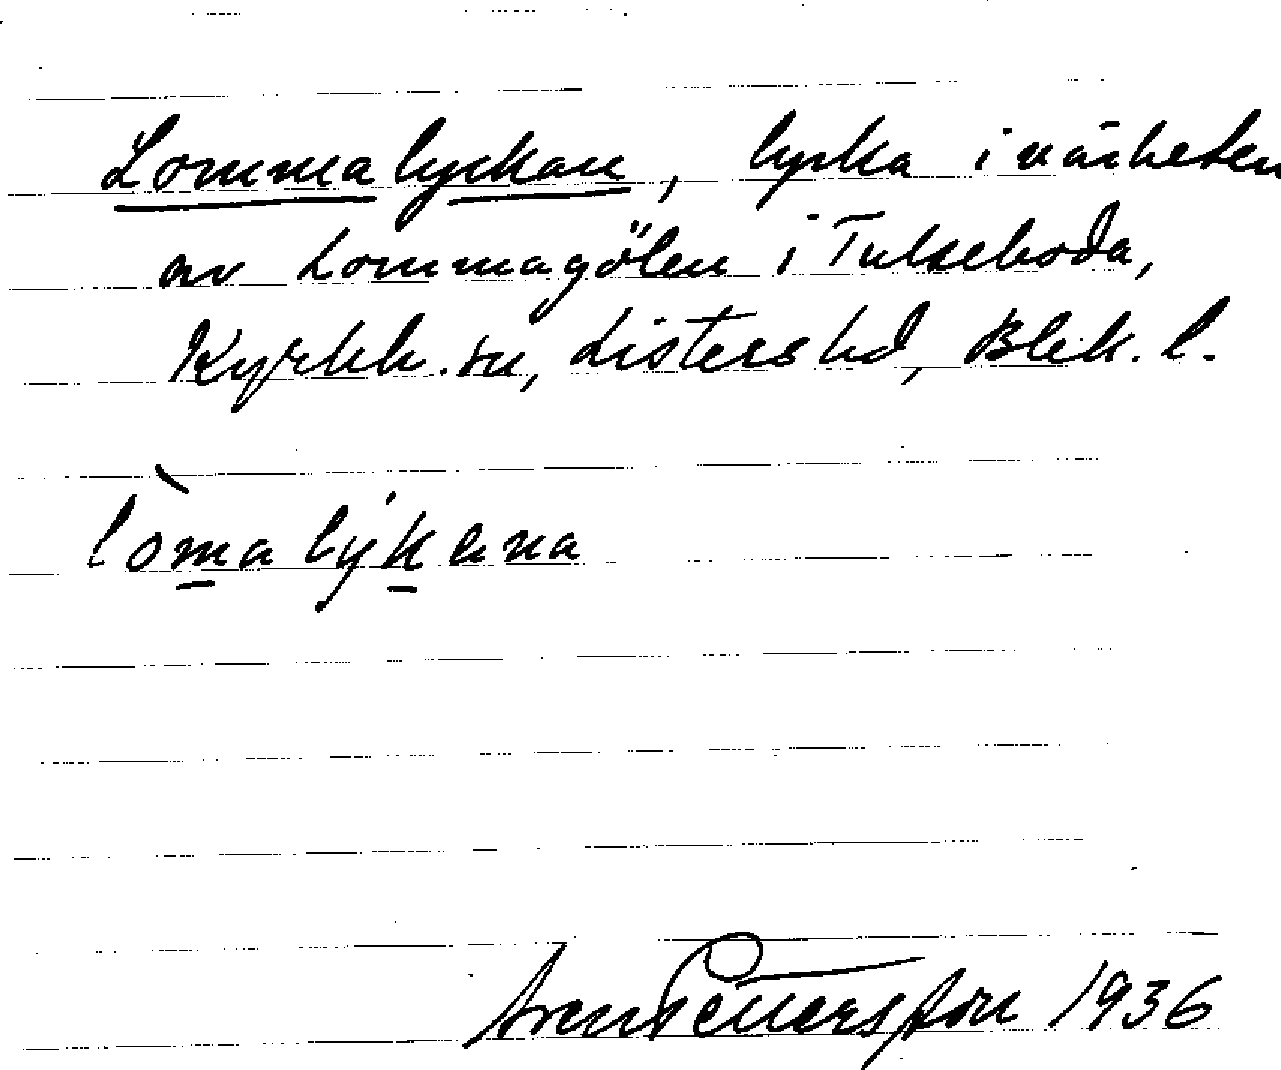 Lommalyckan, lycka i närheten
av Lommagölen i Tulseboda,
Kyrkh. sn, Listers hd, Blek. l.
lòmalýkana
Sven Pettersson 1936